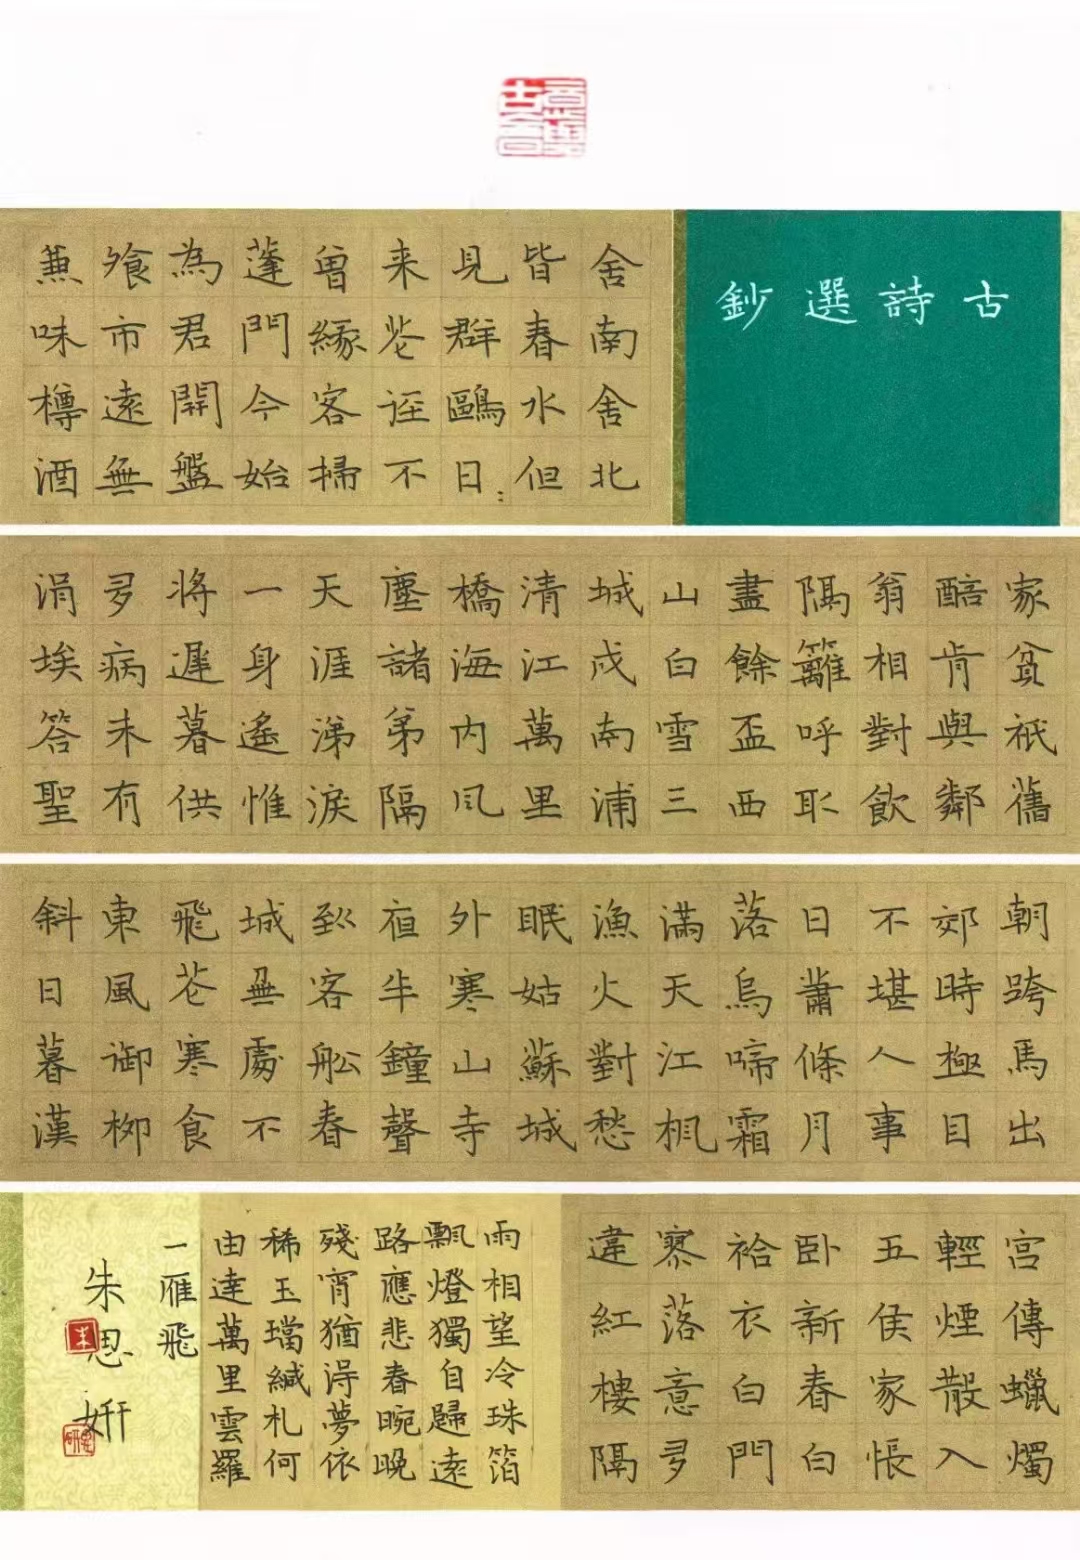 意與古會
古詩選鈔
舍南舍北
皆春水但
見群鷗日:
来花径不
曾緣客掃
蓬門今始
為君開盤
飧市遠無
兼味樽酒
家貧祇舊
醅肯與鄰
翁相對飲
隔籬呼取
盡餘盃西
山白雪三
城戍南浦
清江萬里
橋海内風
塵諸弟隔
天涯涕淚
一身遙惟
將遲暮供
多病未有
涓埃答聖
朝跨馬出
郊時極目
不堪人事
日蕭條月
落烏啼霜
滿天江楓
漁火對愁
眠姑蘇城
外寒山寺
夜半鐘聲
到客船春
城無處不
飛花寒食
東風御柳
斜日暮漢
宫傳蠟燭
輕煙散入
五侯家悵
卧新春白
袷衣白門
寥落意多
違紅樓隔
雨相望冷珠箔
飄燈獨自歸遠
路應悲春晼晚
殘宵猶得夢依
稀玉璫緘札何
由達萬里雲羅
一雁飛
朱思妍
朱